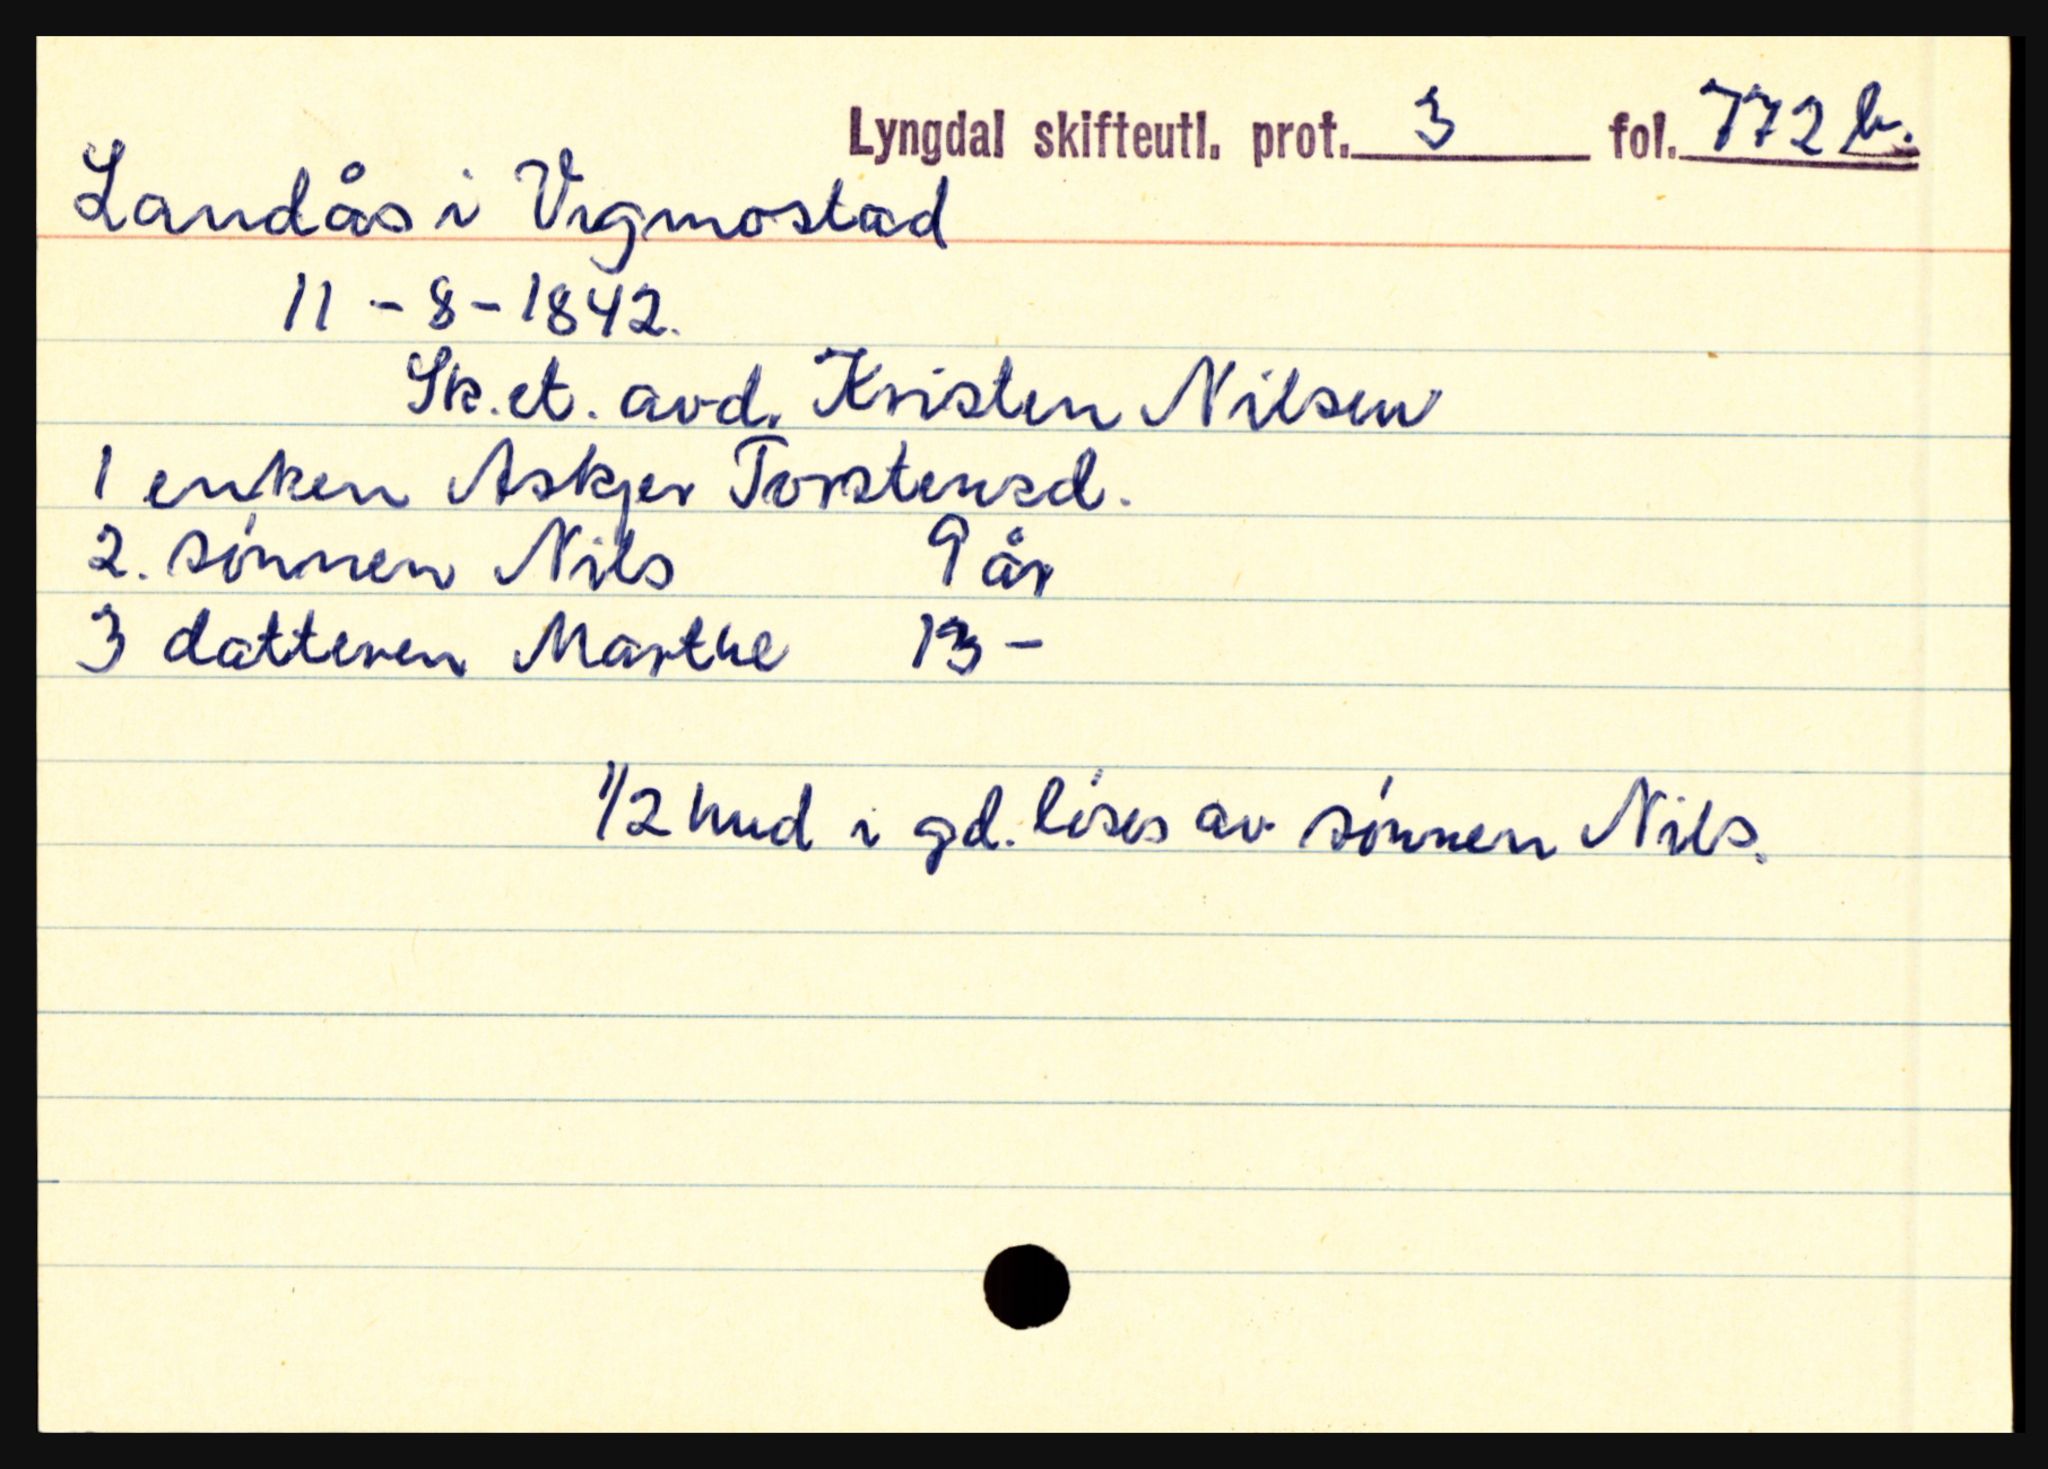 Lyngdal skifteutl. prot. 3 fol. 772 b.
Landås i Vigmostad
11 - 8 - 1842.
Sk. et. avd. Kristen Nilsen
1 enken Askjer Torstensd.
2. sønnen Nils 9 år
3 datteren Marthe 13 -
1/2 hud i gd. løses av sønnen Nils.